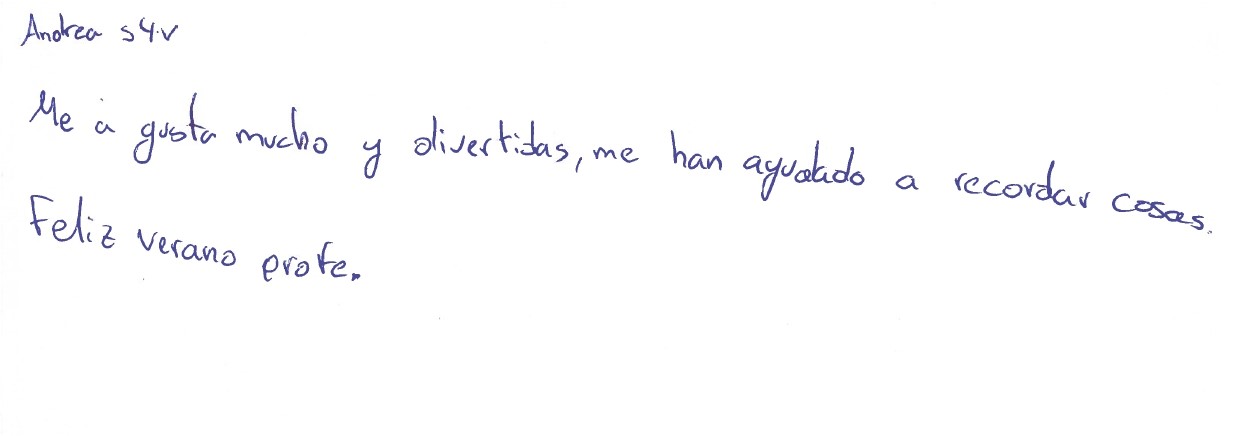 Andrea s4.v
Me a gusta mucho y divertidas, me han ayudado a recordar cosas.
Feliz verano profe.